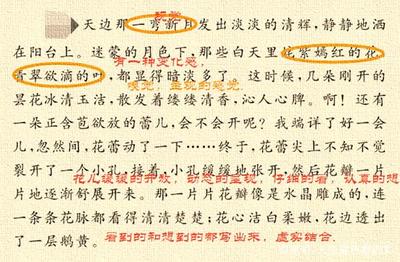 天边那一弯新月发出淡淡的清辉，静静地洒
在阳台上。迷蒙的月色下，那些白天里姹紫嫣红的花
有一种变化感，
青翠欲滴的叶，都显得暗淡多了。这时候，几朵刚开的
嗅觉、
昙花冰清玉洁，散发着缕缕清香，沁人心脾。啊！还有
一朵正含苞欲放的蕾儿，会不会开呢？我端详了好一会
儿，忽然间，花蕾动了一下……终于，花蕾尖上不知不觉
裂开了一个小孔，接着，小孔缓缓地张开，然后花瓣一片
花儿缓缓的开放，动态的呈现，仔细的看，认真的想
片地逐渐舒展开来。那一片片花瓣像是水晶雕成的，连
一条条花脉都看得清清楚楚；花心洁白柔嫩，花边透出
了一层鹅黄。
看到的和想到的都写出来，虚实结合.